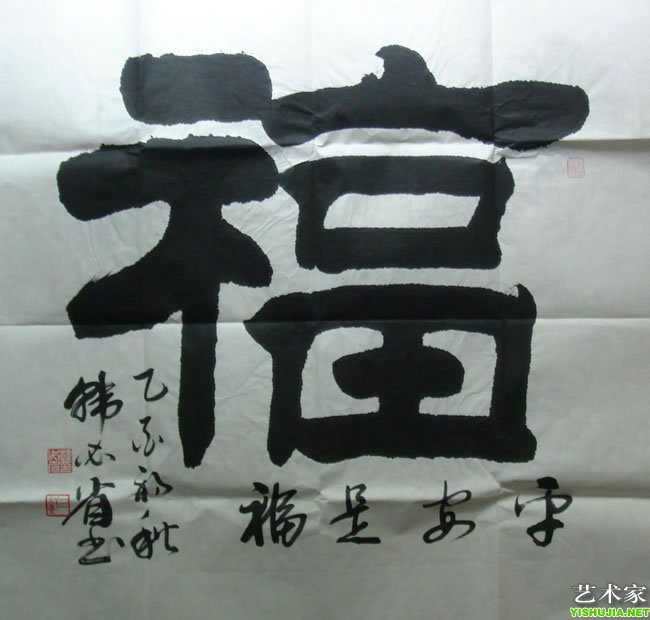 福
平安是福
乙酉初秋
韩必省书
艺术家
YISHUJIA.NET